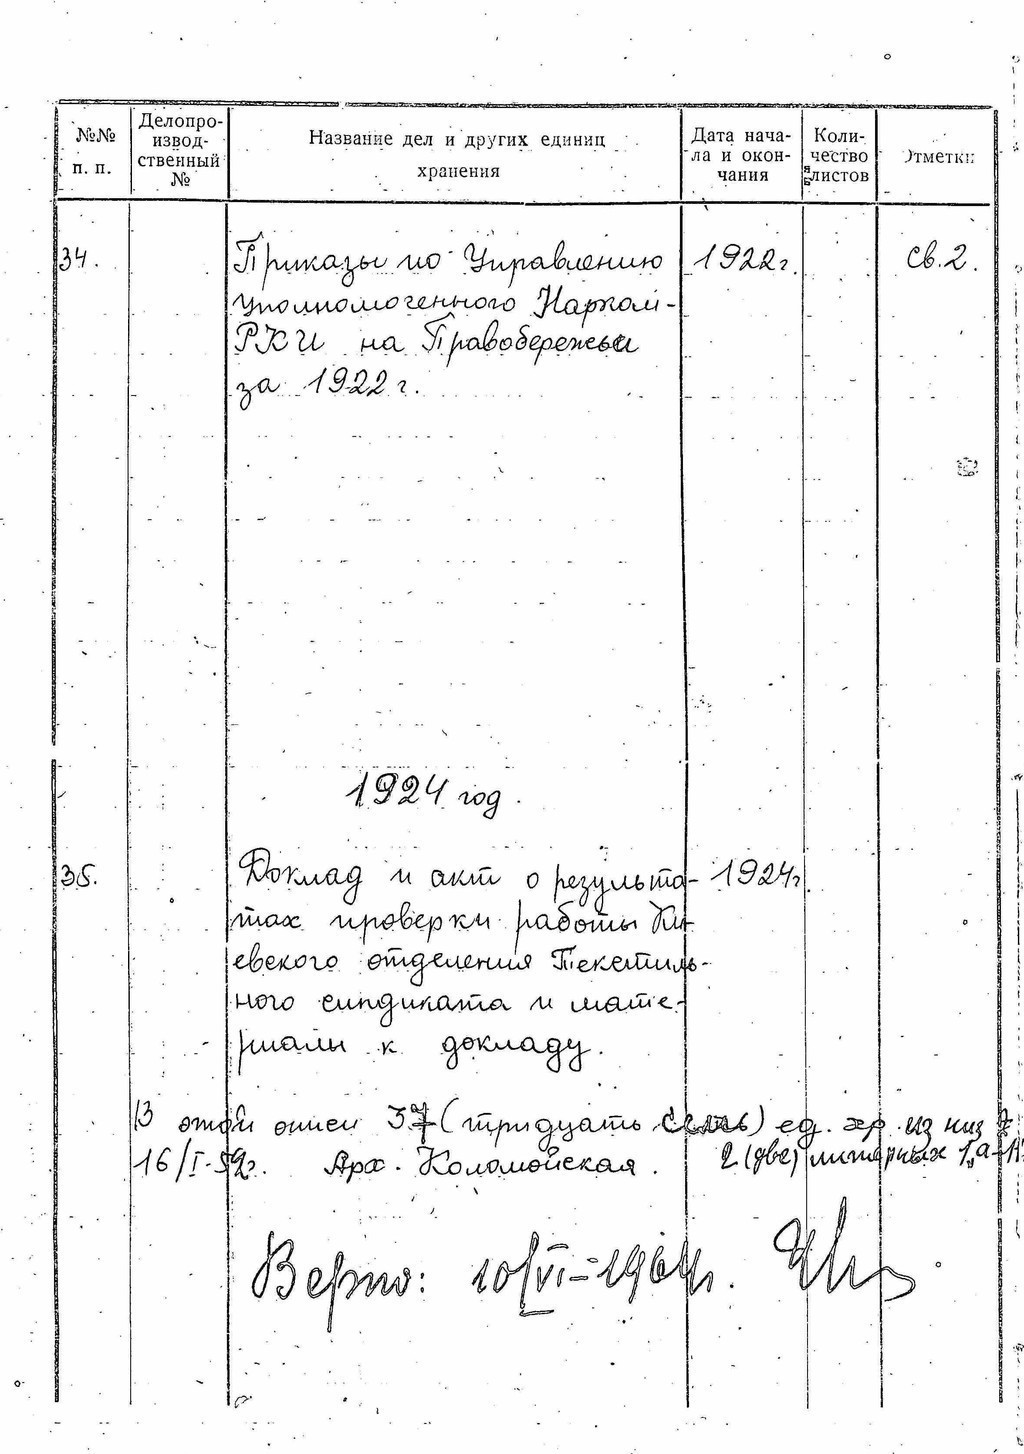 №№ п. п.
Делопро-
извод-
ственный
№
Название дел и других единиц
хранения
Дата нача-
ла и окон-
чания
Коли-
чество
листов
Отметки
34.
Приказы по Управлению
уполномоченного Нарком-
РКИ на Правобережьи
за 1922 г.
1922 г.
св. 2.
1924 год.
35.
Доклад и акт о результа-
тах проверки работы Ки-
евского отделения Текстиль-
ного синдиката и мате-
риалы к докладу.
1924 г.
В этой описи 37 (тридцать семь) ед. хр. из них
2 (две) литерных 1"а"
16/I-52г. Арх. Коломойская.
Верно: 10/VI-1964г.